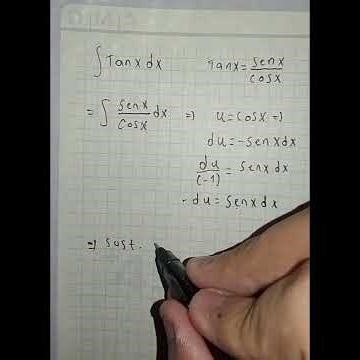 ∫ Tanx dx    Tanx = senx/cosx
= ∫ senx/cosx dx ⇒ u = cosx ⇒
du = -senxdx
du/(-1) = senxdx
- du = senxdx
⇒ sust.